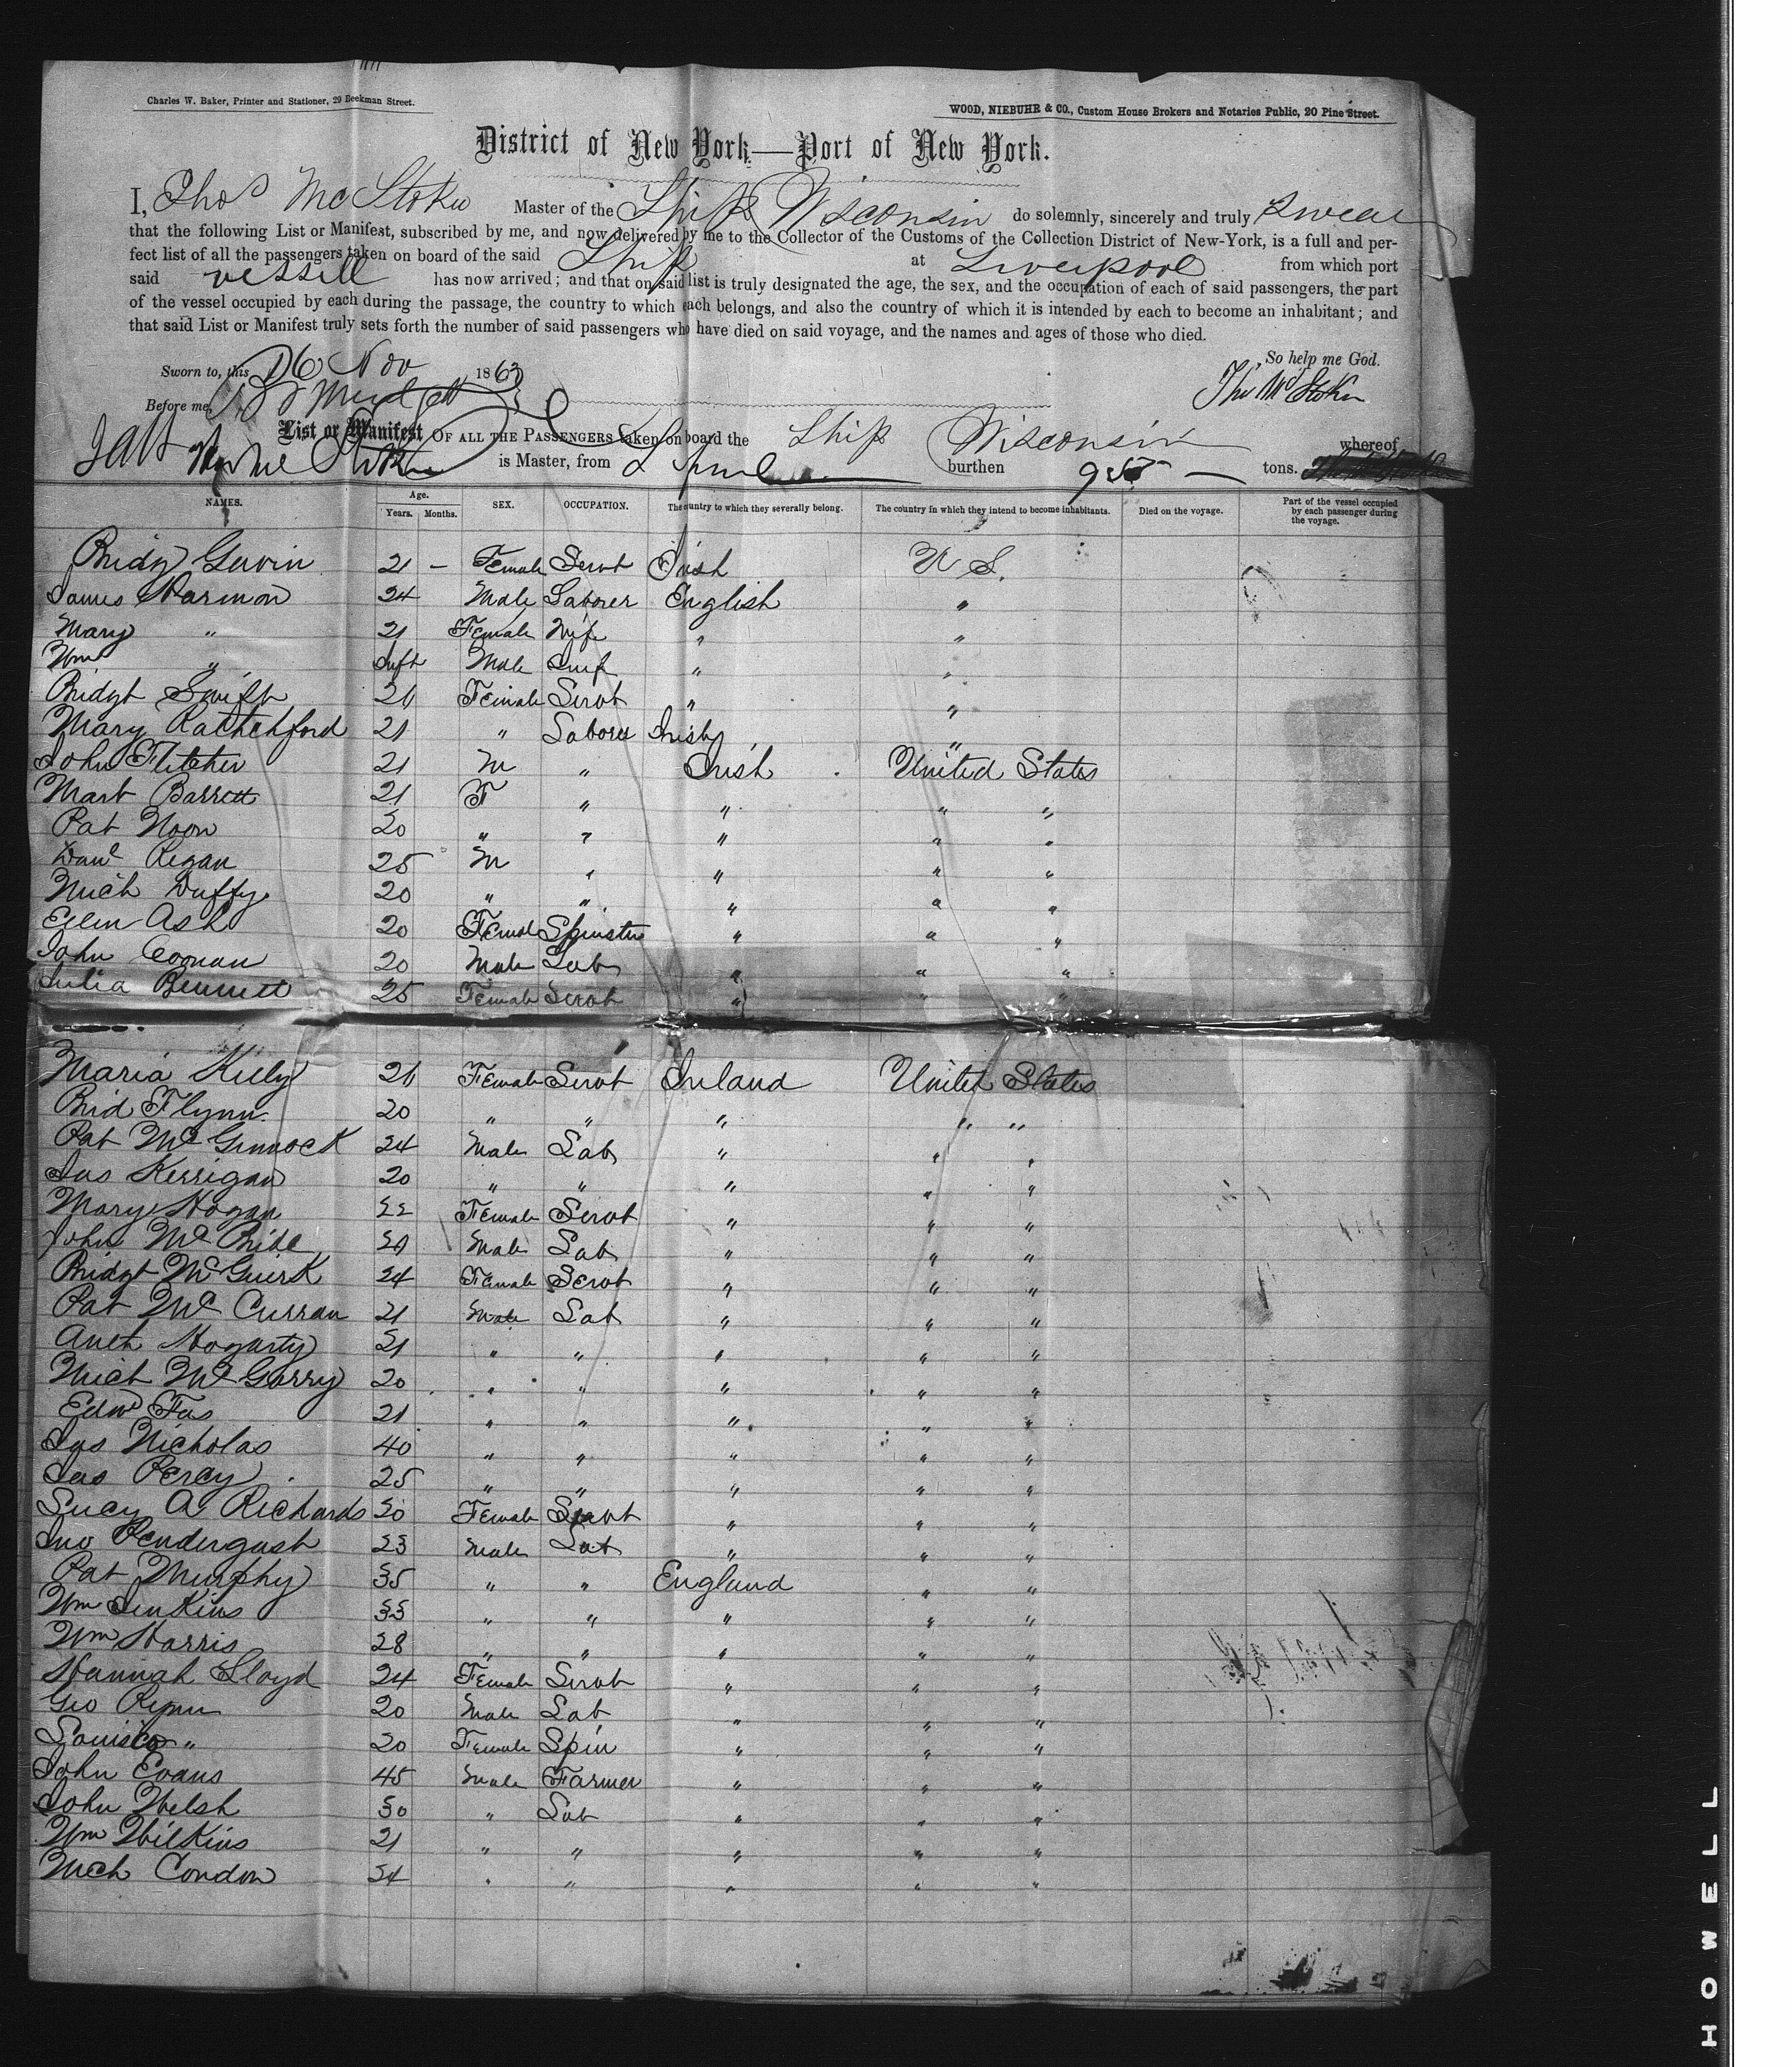 Charles W. Baker, Printer and Stationer, 29 Beekman Street.
WOOD, NIEBUHR & CO., Custom House Brokers and Notaries Public, 20 Pine Street.
District of New York—Port of New York.
I, Thos Mc Stoker Master of the Ship Wisconsin do solemnly, sincerely and truly swear
that the following List or Manifest, subscribed by me, and now delivered by me to the Collector of the Customs of the Collection District of New-York, is a full and per-
fect list of all the passengers taken on board of the said Ship at Liverpool from which port
said vessell has now arrived; and that on said list is truly designated the age, the sex, and the occupation of each of said passengers, the part
of the vessel occupied by each during the passage, the country to which each belongs, and also the country of which it is intended by each to become an inhabitant; and
that said List or Manifest truly sets forth the number of said passengers who have died on said voyage, and the names and ages of those who died.
So help me God.
Sworn to, this 26 Nov 1863
Tho Mc Stoker
Before me,
List or Manifest OF ALL THE PASSENGERS taken on board the Ship Wisconsin whereof
is Master, from L'pool burthen tons.
NAMES. Age. Years. Months. SEX. OCCUPATION. The country to which they severally belong. The country in which they intend to become inhabitants. Died on the voyage. Part of the vessel occupied by each passenger during the voyage.
Bridg Gavin 21 – Female Servt Irish U S.
James Harmon 24 Male Laborer English "
Mary " 21 Female Wife " "
Wm " Inft Male Inf " "
Bridgt Swift 21 Female Servt " "
Mary Ratchford 21 " Laborer Irish "
John Fletcher 21 M " Irish United States
Mart Barrett 21 F " " " "
Pat Noon 20 " " " " "
Danl Regan 25 M " " " "
Mich Duffy 20 " " " " "
Ellen Ash 20 Femal Spinster " " "
John Coonan 20 Male Lab " " "
Julia Bennett 25 Female Servt " " "
Maria Kiely 21 Female Servt Ireland United States
Brid Flynn 20 " " " " "
Pat Mc Ginnock 24 Male Lab " " "
Jas Kerrigan 20 " " " " "
Mary Hogan 22 Female Servt " " "
John Mc Bride Male Lab " " "
Bridgt McGuirk 24 Female Servt " " "
Pat Mc Curran 21 Male Lab " " "
Anth Hogarty 21 " " " " "
Mich Mc Garry 20 " " " " "
Edwd 21 " " " " "
Jas Nicholas 40 " " " " "
Jas Percy 25 " " " " "
Lucy A Richards 30 Female Servt " " "
Jno Pendergast 23 Male Lab " " "
Pat Murphy 35 " " England " "
Wm Jenkins 33 " " " " "
Wm Harris 28 " " " " "
Hannah Lloyd 24 Female Servt " " "
Geo 20 Male Lab " " "
Louisa " 20 Female Spin " " "
John Evans 45 Male Farmer " " "
John Welsh 30 " Lab " " "
Wm Wilkins 21 " " " " "
Mich Condon 24 " " " " "
HOWELL